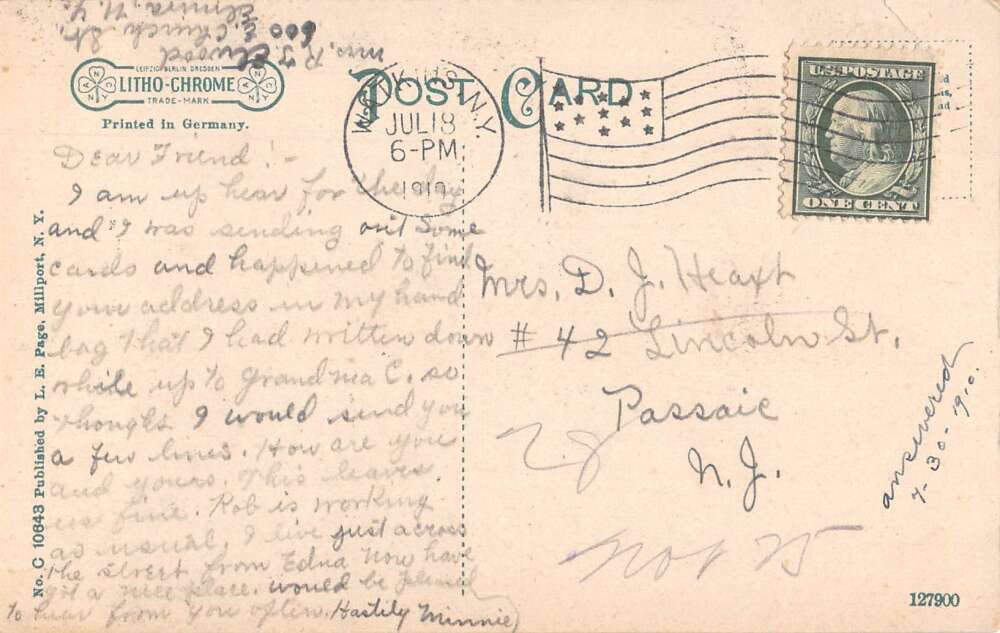 Mrs. R. J. Elwood
600 E. Church St.,
Elmira, N. Y.
LEIPZIG BERLIN DRESDEN
LITHO-CHROME
TRADE-MARK
Printed in Germany.
POST CARD
N.Y.
JUL 18
6-PM
1910
U.S. POSTAGE
ONE CENT
Dear Friend! -
I am up hear for the day
and I was sending out some
cards and happened to find
your address in my hand
bag that I had written down
while up to Grandma C. so
thought I would send you
a few lines. How are you
and yours. This leaves
us fine. Rob is working
as usual. I live just across
the street from Edna now have
got a nice place. would be pleased
to hear from you often. Hastily Minnie
Mrs. D. J. Heaxt
# 42 Lincoln St.
Passaic
N. J.
Not 25
answered
7-30-1910.
No. C 10643 Published by L. E. Page, Millport, N. Y.
127900